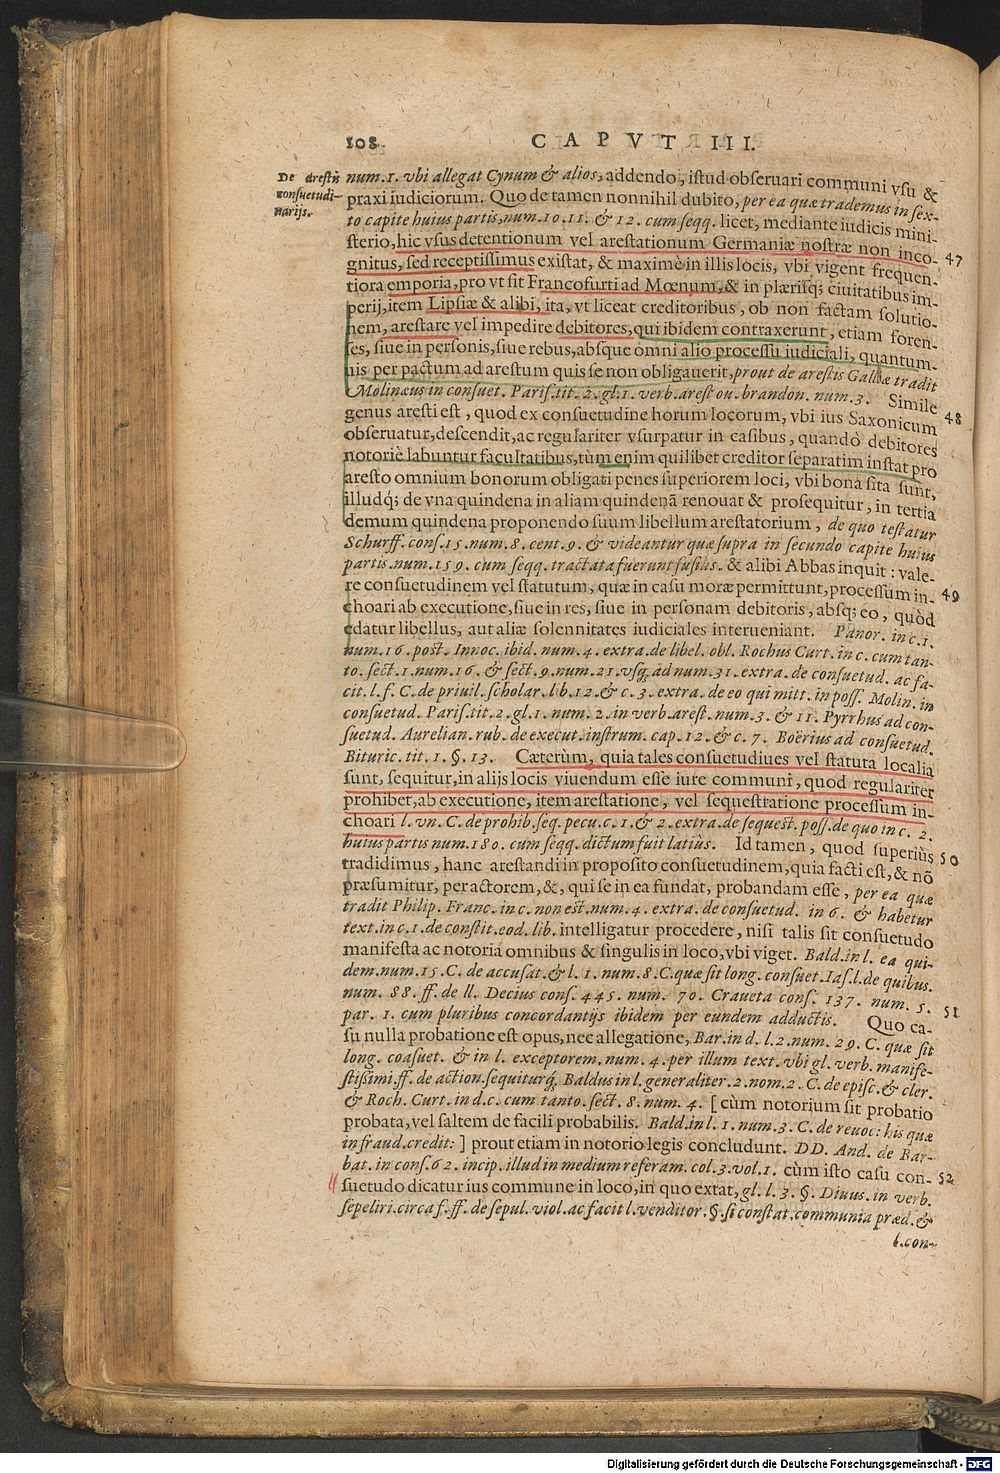 108 CAPVT III.
De arestis
consuetudi-
narijs.
num. 1. vbi allegat Cynum & alios, addendo, istud obseruari communi vsu &
praxi iudiciorum. Quo de tamen nonnihil dubito, per ea quæ trademus in sex-
to capite huius partis, num. 10. 11. & 12. cum seqq. licet, mediante iudicis mini-
sterio, hic vsus detentionum vel arestationum Germaniæ nostræ non inco- 47
gnitus, sed receptissimus existat, & maximè in illis locis, vbi vigent frequen-
tiora emporia, pro vt sit Francofurti ad Mœnum, & in plærisq; ciuitatibus im-
perij, item Lipsiæ & alibi, ita, vt liceat creditoribus, ob non factam solutio-
nem, arestare vel impedire debitores, qui ibidem contraxerunt, etiam foren-
ses, siue in personis, siue rebus, absque omni alio processu iudiciali, quantum-
uis per pactum ad arestum quis se non obligauerit, prout de arestis Galliæ tradit
Molinæus in consuet. Paris. tit. 2. gl. 1. verb. arest ou. brandon. num. 3. Simile 48
genus aresti est, quod ex consuetudine horum locorum, vbi ius Saxonicum
obseruatur, descendit, ac regulariter vsurpatur in casibus, quandò debitores
notoriè labuntur facultatibus, tùm enim quilibet creditor separatim instat pro
aresto omnium bonorum obligati penes superiorem loci, vbi bona sita sunt,
illudq; de vna quindena in aliam quindenã renouat & prosequitur, in tertia
demum quindena proponendo suum libellum arestatorium, de quo testatur
Schurff. cons. 15. num. 8. cent. 9. & videantur quæ supra in secundo capite huius
partis. num. 159. cum seqq. tractata fuerunt fusius. & alibi Abbas inquit: vale-
re consuetudinem vel statutum, quæ in casu moræ permittunt, processum in- 49
choari ab executione, siue in res, siue in personam debitoris, absq; eo, quòd
edatur libellus, aut aliæ solennitates iudiciales interueniant. Panor. in c. 1.
num. 16. post. Innoc. ibid. num. 4. extra. de libel. obl. Rochus Curt. in c. cum tan-
to. sect. 1. num. 16. & sect. 9. num. 21. vsq; ad num. 31. extra. de consuetud. ac fa-
cit. l. f. C. de priuil. scholar. lib. 12. & c. 3. extra. de eo qui mitt. in poss. Molin. in
consuetud. Paris. tit. 2. gl. 1. num. 2. in verb. arest. num. 3. & 11. Pyrrhus ad con-
suetud. Aurelian. rub. de execut. instrum. cap. 12. & c. 7. Boërius ad consuetud.
Bituric. tit. 1. §. 13. Cæterùm, quia tales consuetudiues vel statuta localia
sunt, sequitur, in alijs locis viuendum esse iure communi, quod regulariter
prohibet, ab executione, item arestatione, vel sequestratione processum in-
choari l. vn. C. de prohib. seq. pecu. c. 1. & 2. extra. de sequest. poss. de quo in c. 2.
huius partis num. 180. cum seqq. dictum fuit latiùs. Id tamen, quod superiùs 50
tradidimus, hanc arestandi in proposito consuetudinem, quia facti est, & nõ
præsumitur, per actorem, &, qui se in ea fundat, probandam esse, per ea quæ
tradit Philip. Franc. in c. non est. num. 4. extra. de consuetud. in 6. & habetur
text. in c. 1. de constit. eod. lib. intelligatur procedere, nisi talis sit consuetudo
manifesta ac notoria omnibus & singulis in loco, vbi viget. Bald. in l. ea qui-
dem. num. 15. C. de accusat. & l. 1. num. 8. C. quæ sit long. consuet. Ias. l. de quibus.
num. 88. ff. de ll. Decius cons. 445. num. 70. Craueta cons. 137. num. 5.
par. 1. cum pluribus concordantijs ibidem per eundem adductis. Quo ca- 51
su nulla probatione est opus, nec allegatione, Bar. in d. l. 2. num. 29. C. quæ sit
long. coasuet. & in l. exceptorem. num. 4. per illum text. vbi gl. verb. manife-
stissimi. ff. de action. sequiturq; Baldus in l. generaliter. 2. nom. 2. C. de episc. & cler.
& Roch. Curt. in d. c. cum tanto. sect. 8. num. 4. [cùm notorium sit probatio
probata, vel saltem de facili probabilis. Bald. in l. 1. num. 3. C. de reuoc: his quæ
in fraud. credit:] prout etiam in notorio legis concludunt. DD. And. de Bar-
bat. in cons. 62. incip. illud in medium referam. col. 3. vol. 1. cùm isto casu con- 52
suetudo dicatur ius commune in loco, in quo extat, gl. l. 3. §. Diuus. in verb.
sepeliri. circa f. ff. de sepul. viol. ac facit l. venditor. §. si constat. communia præd. &
l. con-
Digitalisierung gefördert durch die Deutsche Forschungsgemeinschaft - DFG